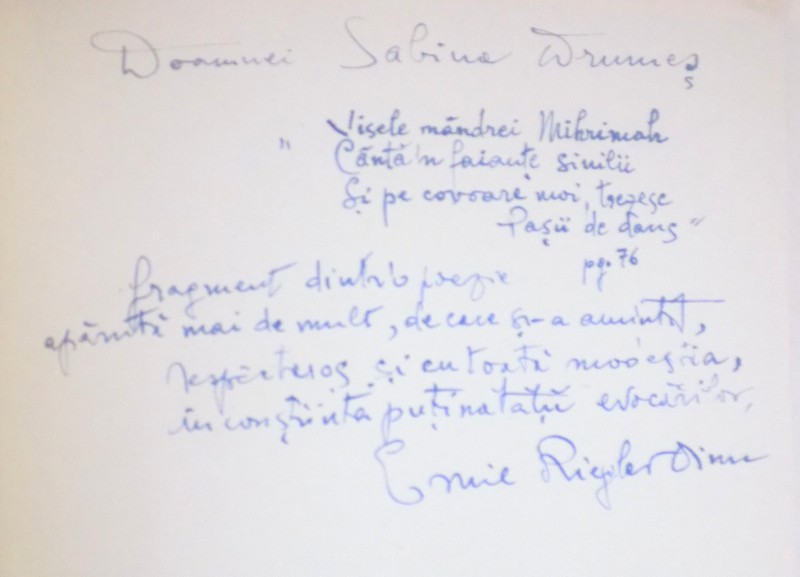 Doamnei Sabina Drumeș
" Visele mândrei Mihrimah
Cântă 'n faianțe sinilii
Și pe covoare moi, trezesc
Pașii de dans "
pg. 76
fragment dintr'o poezie
apărută mai de mult, de care și-a amintit,
respectuos și cu toată modestia,
în conștiința puținătății evocărilor,
Emil Riegler Dinu